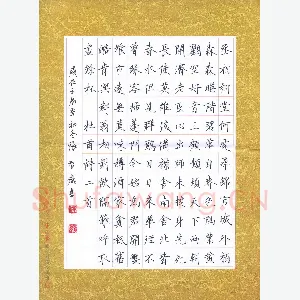 丞相祠堂何處尋錦官城外柏
森森映階碧草自春色隔葉黃
鸝空好音三顧頻煩天下計兩朝
開濟老臣心出師未捷身先死
長使英雄淚滿襟舍南舍北皆
春水但見群鷗日日來花徑不
曾緣客掃蓬門今始為君開盤
飧市遠無兼味樽酒家貧祇舊
醅肯與鄰翁相對飲隔籬呼取
盡餘杯 杜甫詩二首